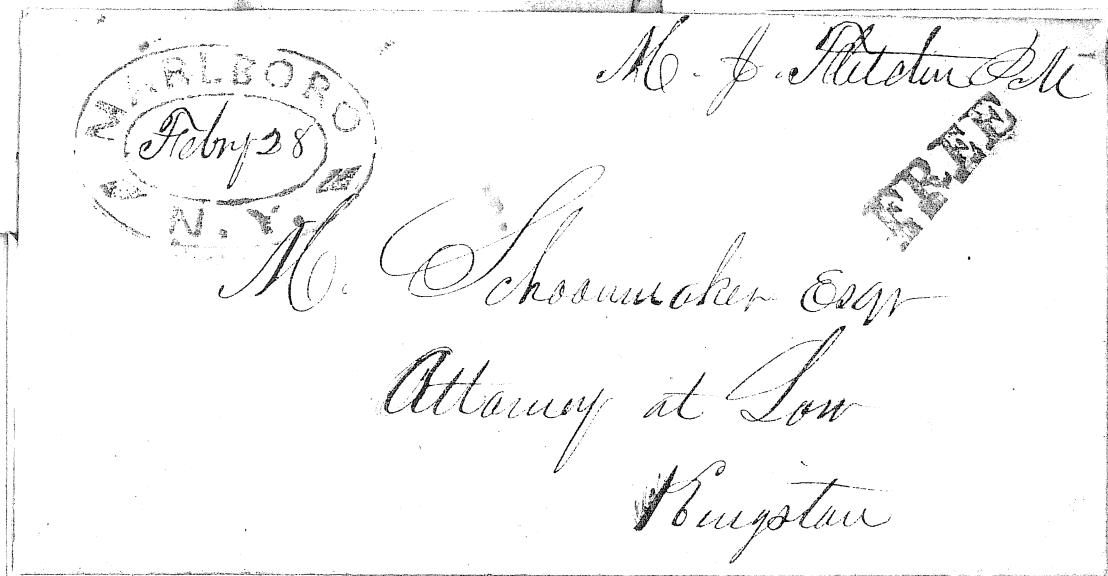 MARLBORO
Febry 28
N.Y.
M. J. Fletcher PM
FREE
M. Schoonmaker Esqr
Attorney at Law
Kingston